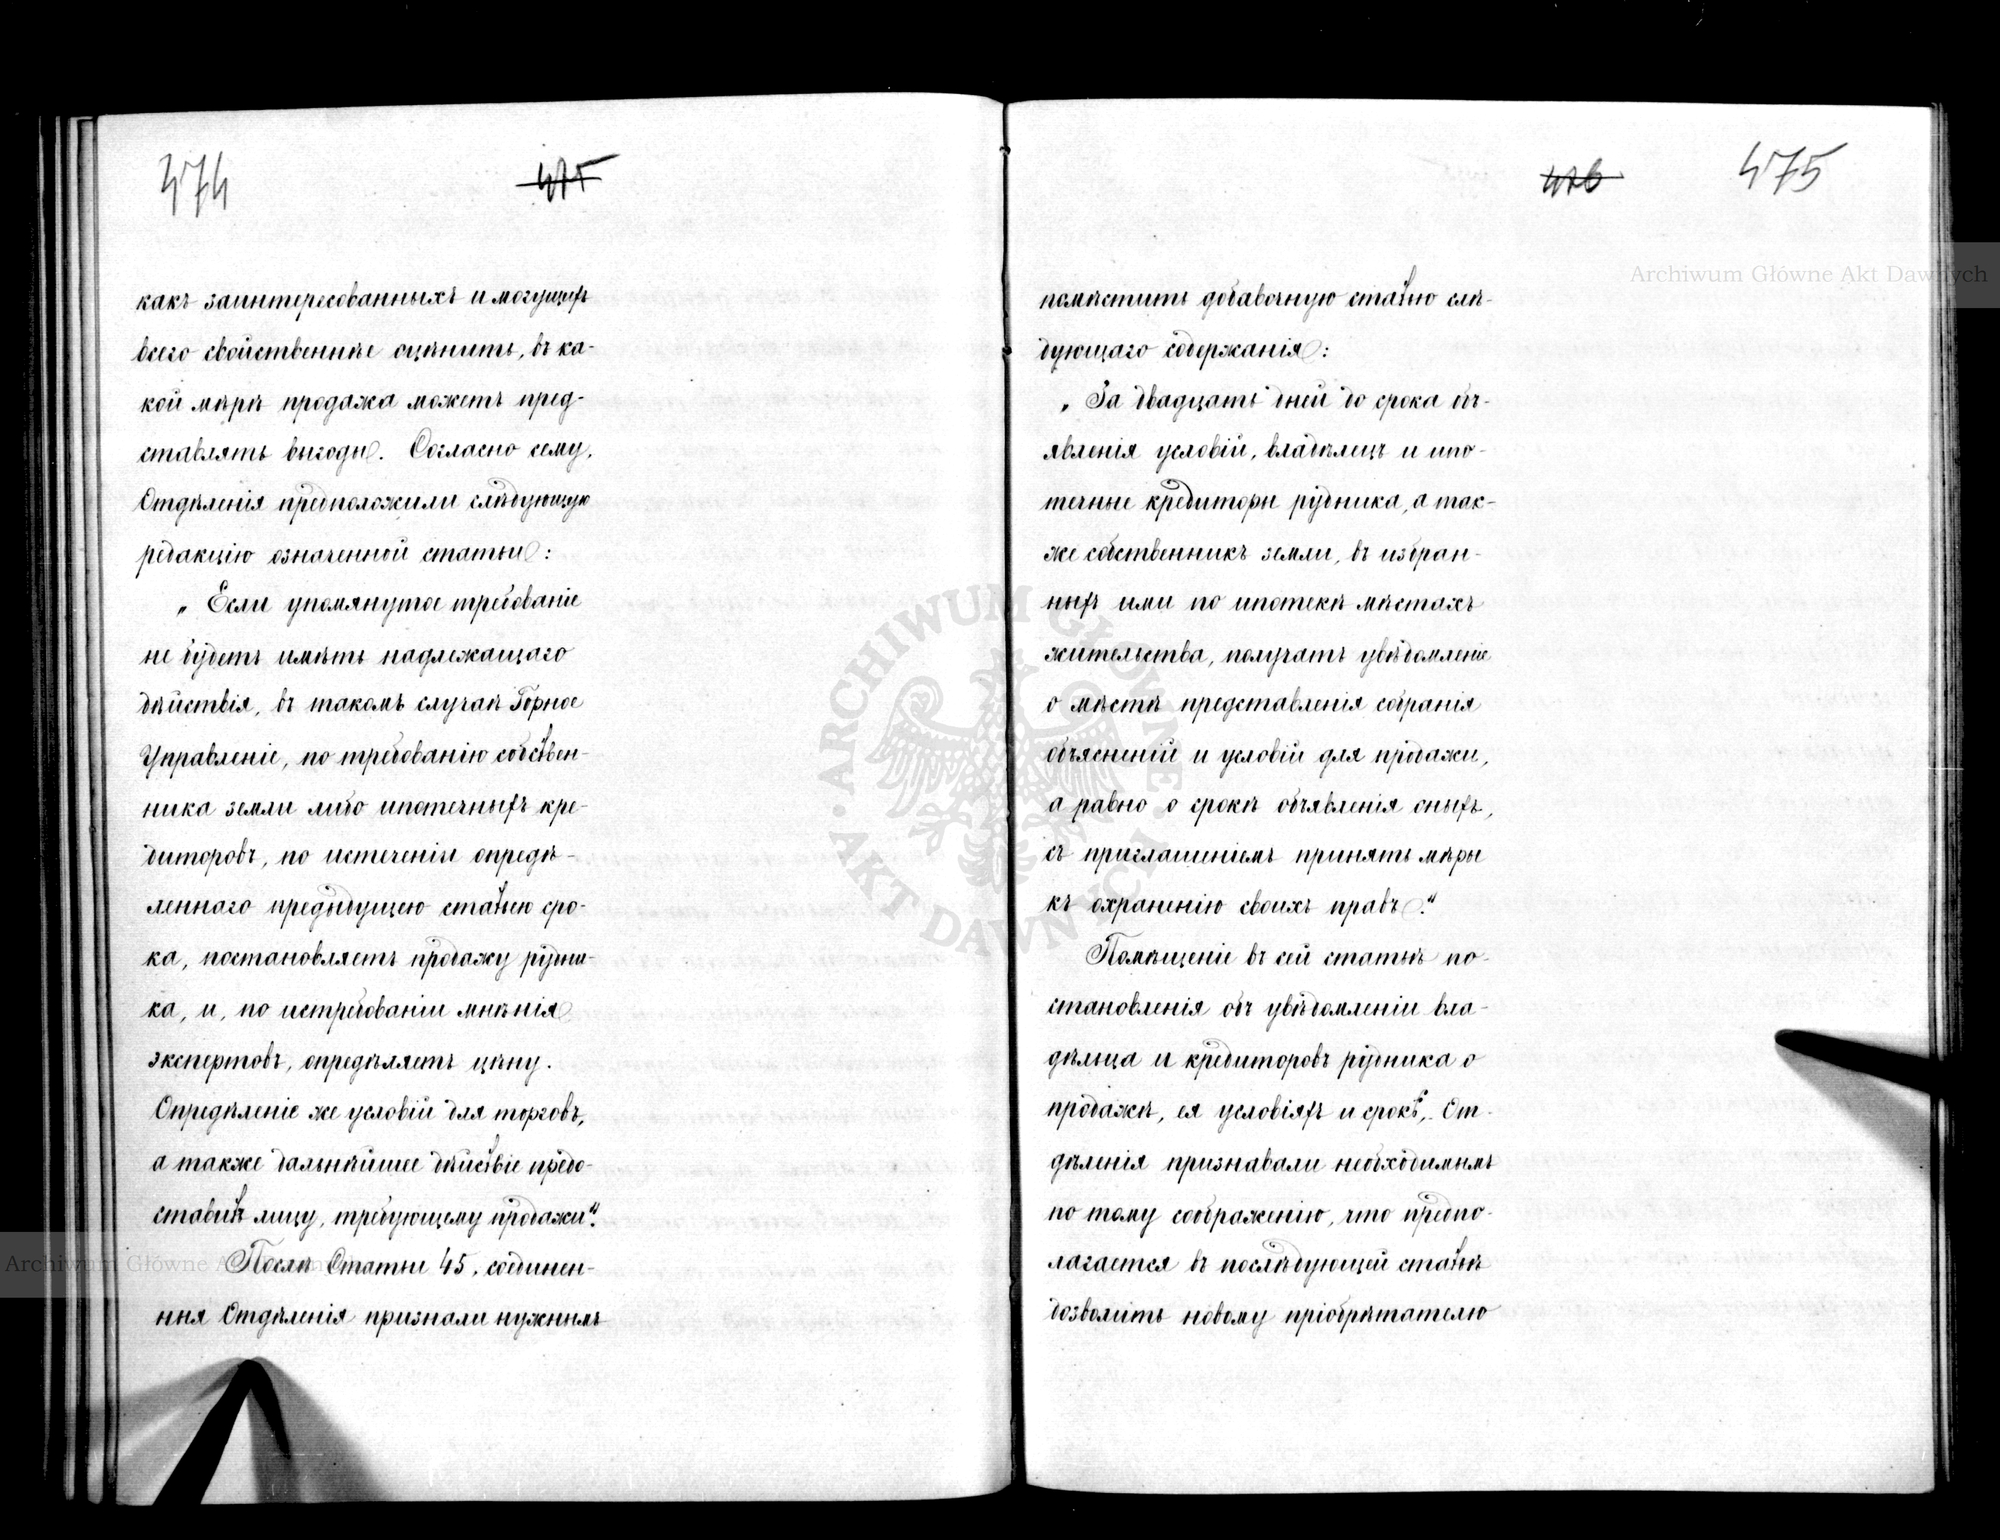 474
475
какъ заинтересованныхъ и могущихъ
всего свойственнѣе оцѣнить, въ ка-
кой мѣрѣ продажа можетъ пред-
ставлять выгоды. Согласно сему,
Отдѣленія предположили слѣдующую
редакцію означенной статьи:
„Если упомянутое требованіе
не будетъ имѣть надлежащаго
дѣйствія, въ такомъ случаѣ Горное
Управленіе, по требованію собствен-
ника земли либо ипотечныхъ кре-
диторовъ, по истеченіи опредѣ-
леннаго предыдущею статьею сро-
ка, постановляетъ продажу рудни-
ка, и, по истребованіи мнѣнія
экспертовъ, опредѣляетъ цѣну.
Опредѣленіе же условій для торговъ,
а также дальнѣйшее дѣйствіе предо-
ставитъ лицу, требующему продажи".
Послѣ Статьи 45, соединен-
ныя Отдѣленія признали нужнымъ
476
475
помѣстить добавочную статью слѣ-
дующаго содержанія:
„За двадцать дней до срока объ-
явленія условій, владѣлецъ и ипо-
течные кредиторы рудника, а так-
же собственникъ земли, въ избран-
ныхъ ими по ипотекѣ мѣстахъ
жительства, получатъ увѣдомленіе
о мѣстѣ представленія собранія
объясненій и условій для продажи,
а равно о срокѣ объявленія оныхъ,
съ приглашеніемъ принять мѣры
къ охраненію своихъ правъ."
Помѣщеніе въ сей статьѣ по-
становленія объ увѣдомленіи вла-
дѣльца и кредиторовъ рудника о
продажѣ, ея условіяхъ и срокѣ, От-
дѣленія признавали необходимымъ
по тому соображенію, что предпо-
лагается въ послѣдующей статьѣ
дозволить новому пріобрѣтателю
Archiwum Główne Akt Dawnych
Archiwum Główne Akt Dawnych
ARCHIWUM GŁÓWNE AKT DAWNYCH